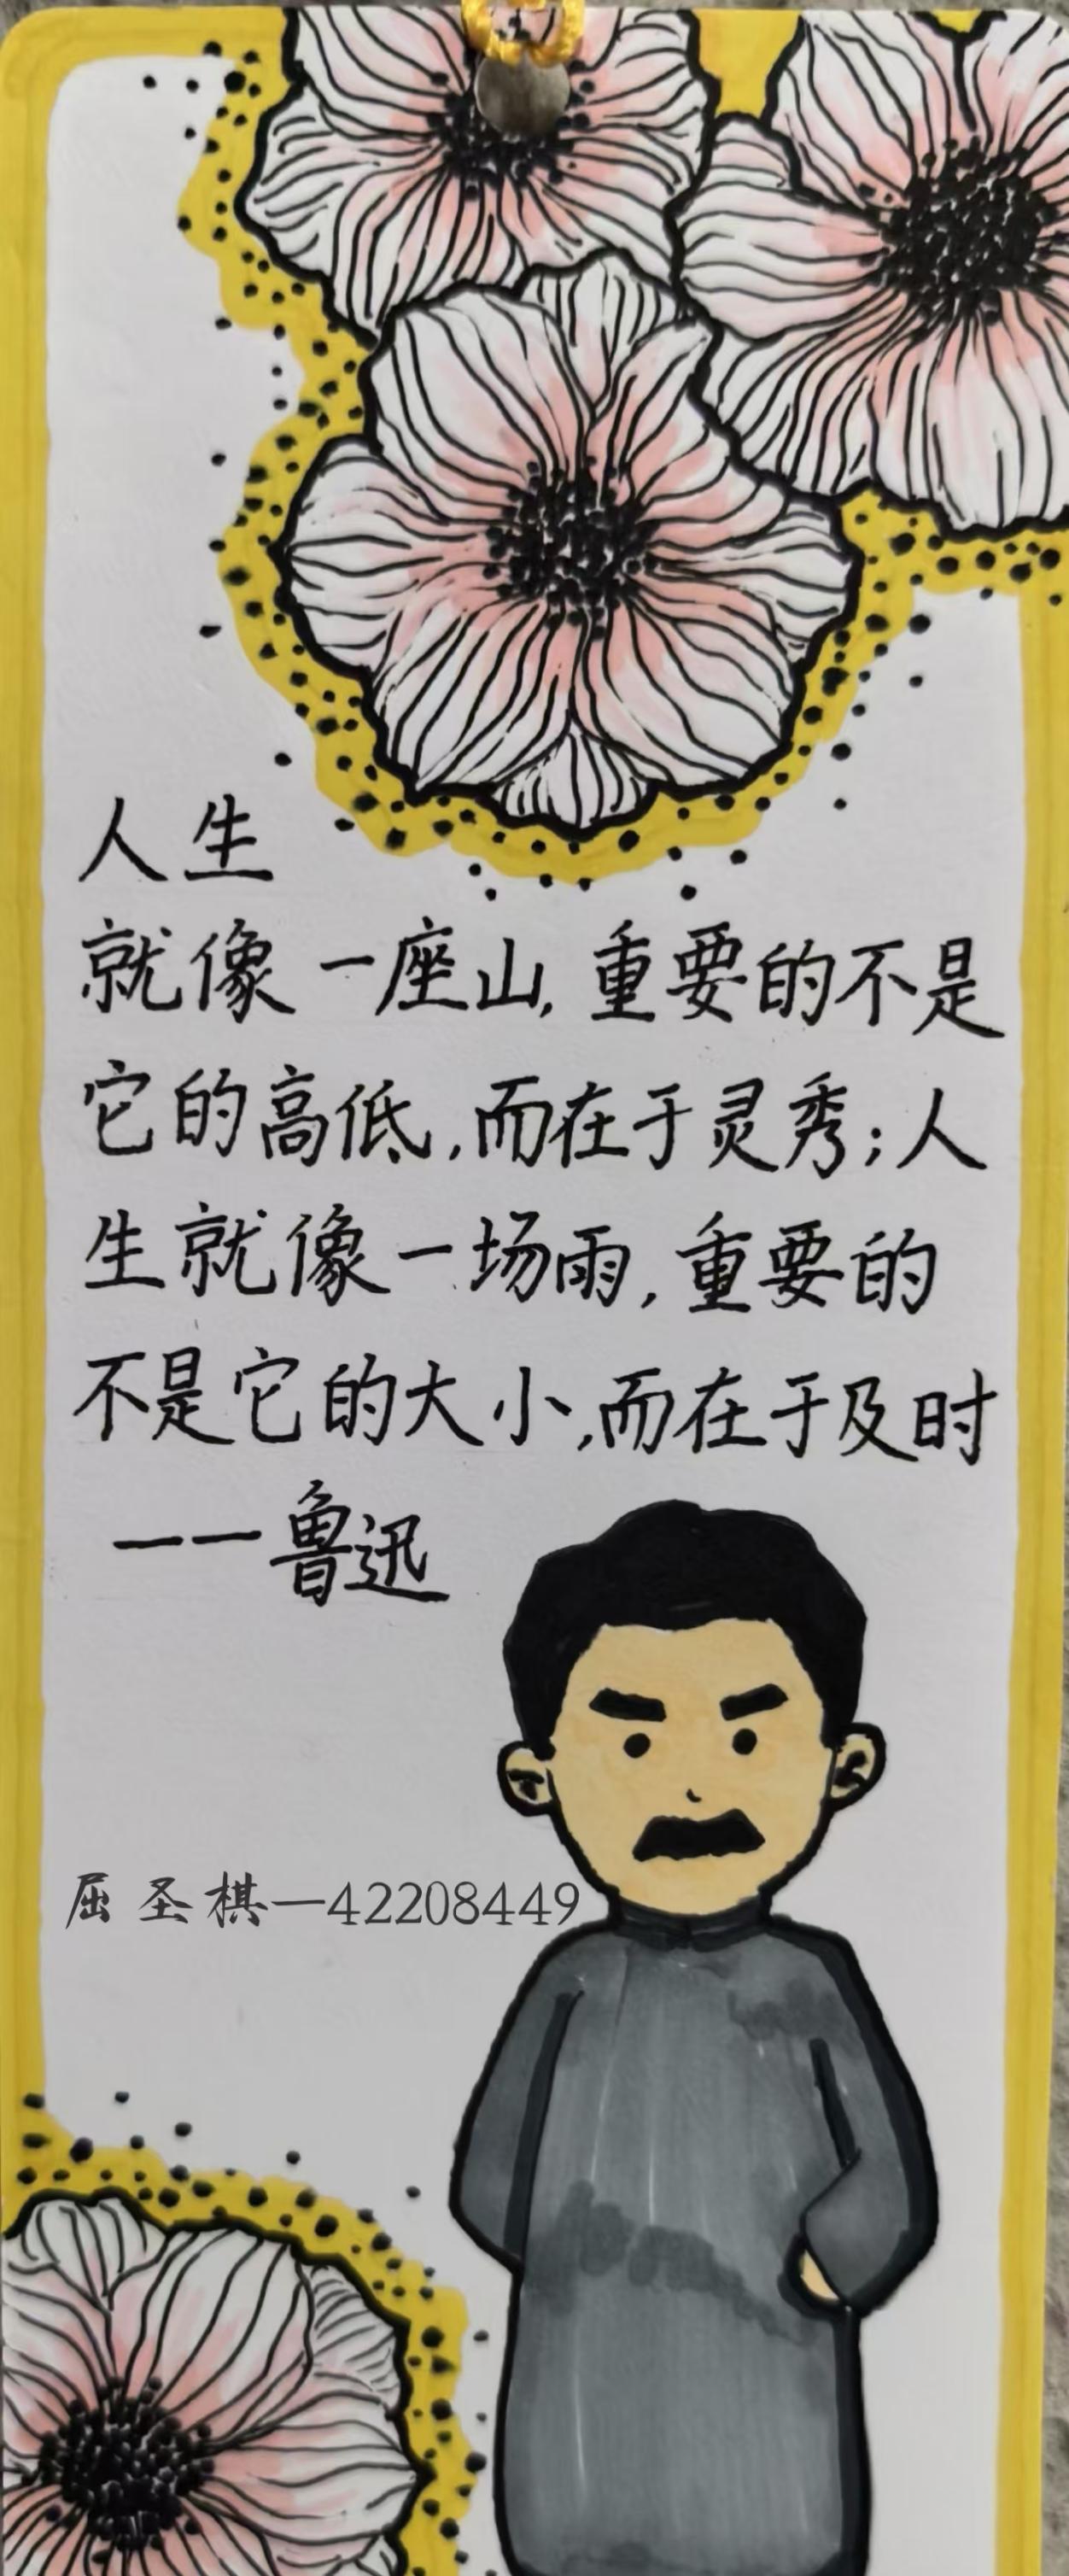 人生
就像一座山,重要的不是
它的高低,而在于灵秀;人
生就像一场雨,重要的
不是它的大小,而在于及时
——鲁迅
屈圣棋—42208449